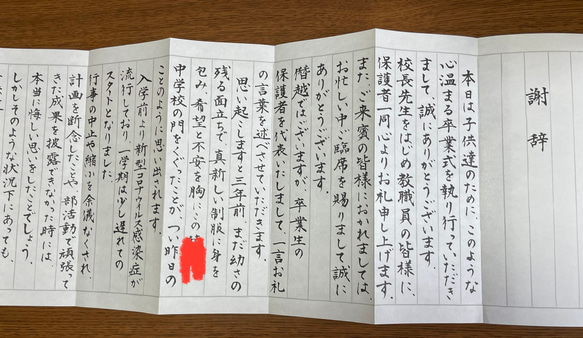 謝辞
本日は子供達のために、このような
心温まる卒業式を執り行っていただき
まして、誠にありがとうございます。
校長先生をはじめ教職員の皆様に、
保護者一同心よりお礼申し上げます。
また、ご来賓の皆様におかれましては、
お忙しい中ご臨席を賜りまして誠に
ありがとうございます。
僭越ではございますが、卒業生の
保護者を代表いたしまして、一言お礼
の言葉を述べさせていただきます。
思い起こしますと三年前、まだ幼さの
残る面立ちで、真新しい制服に身を
包み、希望と不安を胸に、この
中学校の門をくぐったことが、つい昨日の
ことのように思い出されます。
入学前より新型コロナウイルス感染症が
流行しており、一学期は少し遅れての
スタートとなりました。
行事の中止や縮小を余儀なくされ、
計画を断念したことや、部活動で頑張って
きた成果を披露できなかった時には、
本当に悔しい思いをしたことでしょう。
しかしそのような状況下にあっても、